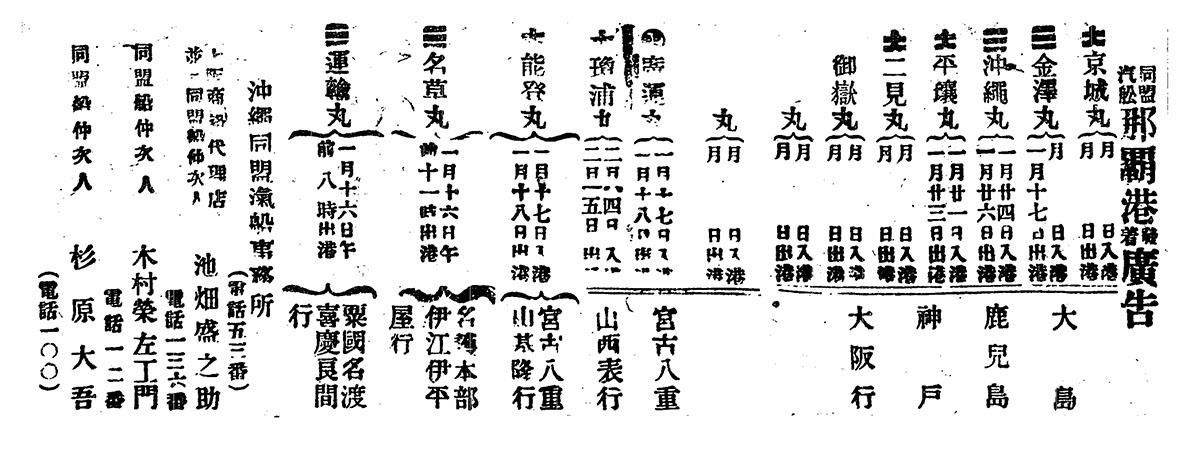 同盟汽舩那覇港發着廣告
京城丸 月 日入港 月 日出港
金澤丸 一月十七日入港 月 日出港
沖繩丸 一月廿四日入港 一月廿六日出港
平壤丸 一月廿一日入港 一月廿三日出港
二見丸 月 日入港 月 日出港
御嶽丸 月 日入港 月 日出港
丸 月 日入港 月 日出港
大島
鹿兒島
神戸
大阪行
丸 月 日入港 月 日出港
一月十七日入港 一月十八日出港
宮古八重
山西表行
能登丸 一月十七日入港 一月十八日出港
宮古八重
山基隆行
名草丸 一月十六日午前十一時出港
名護本部
伊江伊平
屋行
運輸丸 一月十六日午前八時出港
粟國名渡
喜慶良間
行
沖繩同盟滊船事務所
(電話五三番)
大阪商船代理店
並ニ同盟船仲次人 池畑盛之助
電話一三六番
同盟船仲次人 木村榮左エ門
電話一二番
同盟船仲次人 杉原大吾
(電話一〇〇)